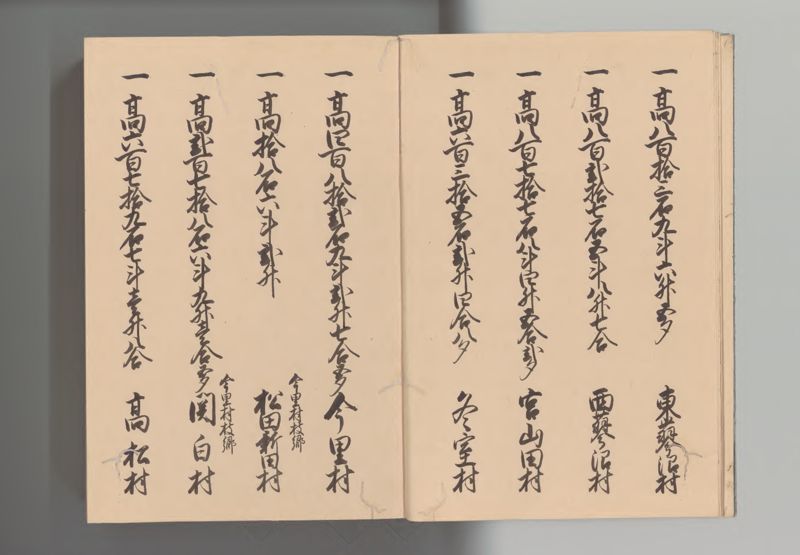 一高八百拾三石九斗六升五夕　東蘂沼村
一高八百弐拾七石五斗八升七合　西蘂沼村
一高八百七拾七石八斗四升五合弐夕　宮山田村
一高六百三拾五石弐升四合八夕　冬室村
一高四百八拾弐石九斗弐升七合五夕　今里村
今里村枝郷
一高拾八石六斗弐升　松田新田村
今里村枝郷
一高弐百七拾八石六斗九升壱合五夕　関白村
一高六百七拾九石七斗壱升八合　高松村